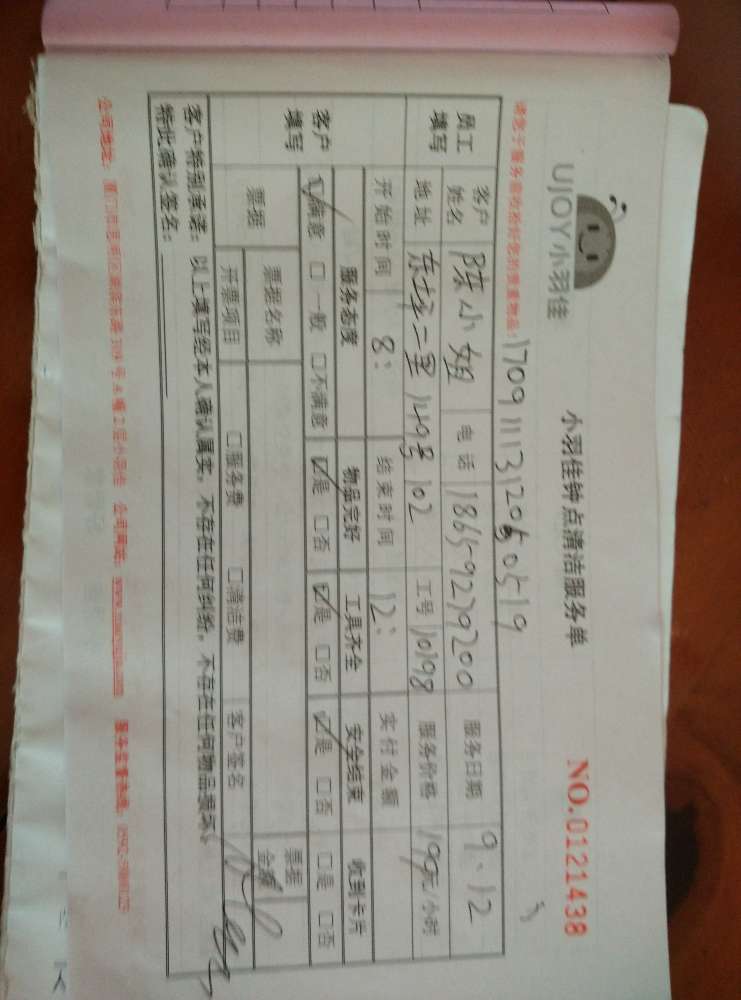 UJOY小羽佳
小羽佳钟点清洁服务单
NO.0121438
请您于服务前收拾好您的贵重物品!
员工填写
客户姓名 陈小姐 电话 18659279200 服务日期 9.12
地址 1149号102 工号 10198 服务价格 元/小时
开始时间 8: 结束时间 12: 实付金额
客户填写
服务态度 物品完好 工具齐全 安全结束 收到卡片
☑满意 □一般 □不满意 ☑是 □否 ☑是 □否 ☑是 □否 □是 □否
票据 票据名称 票据金额
开票项目 □服务费 □清洁费 客户签名
客户特别承诺: 以上填写经本人确认属实,不存在任何纠纷,不存在任何物品损坏。
特此确认签名:
公司地址: 公司网址: 服务监督热线: